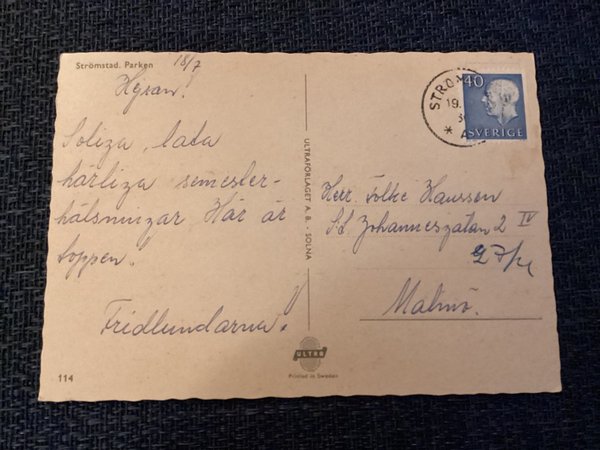 Strömstad. Parken
18/7
Hejsan!
Soliga, lata
härliga semester-
hälsningar. Här är
toppen!
Fridlundarna!
114
ULTRAFÖRLAGET A. B. - SOLNA
ULTRA
Printed in Sweden
STRÖM
19.
40
SVERIGE
Herr Folke Hansson
S:t Johannesgatan 2 IV
Malmö.